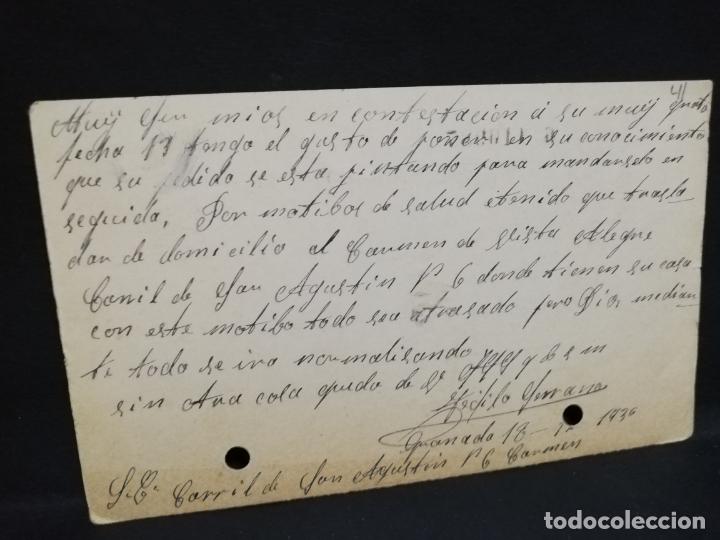 41
Muy Srs mios en contestacion á su muy grata
fecha 13 tengo el gusto de poner en su conocimiento
que su pedido se esta pintando para mandarselo en
seguida, Por motibos de salud e tenido que trasla
dar de domicilio al Carmen de Vista Alegre
Carril de San Agustin Nº 6 donde tienen su casa
con este motibo todo sea atrasado pero Dios median
te todo se ira normalisando
sin otra cosa quedo de Vs
Serrano
Granada 18 - 1936
S.C. Carril de San Agustin Nº 6 Carmen
todocoleccion
todocoleccion.net